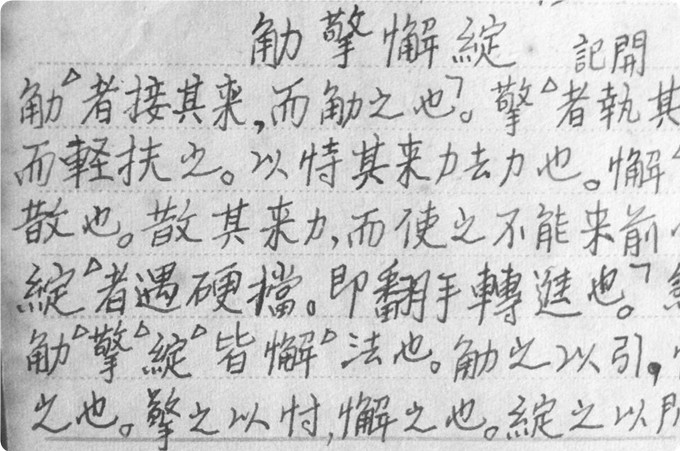 觔擎懈綻 記開
觔△者接其来,而觔之也」。擎△者執其
而軽扶之。以恃其来力去力也。懈△
散也。散其来力,而使之不能来前
綻△者遇硬擋。即翻手轉進也。」
觔△擎△綻△皆懈△法也。觔之以引,
之也。擎之以忖,懈之也。綻之以開